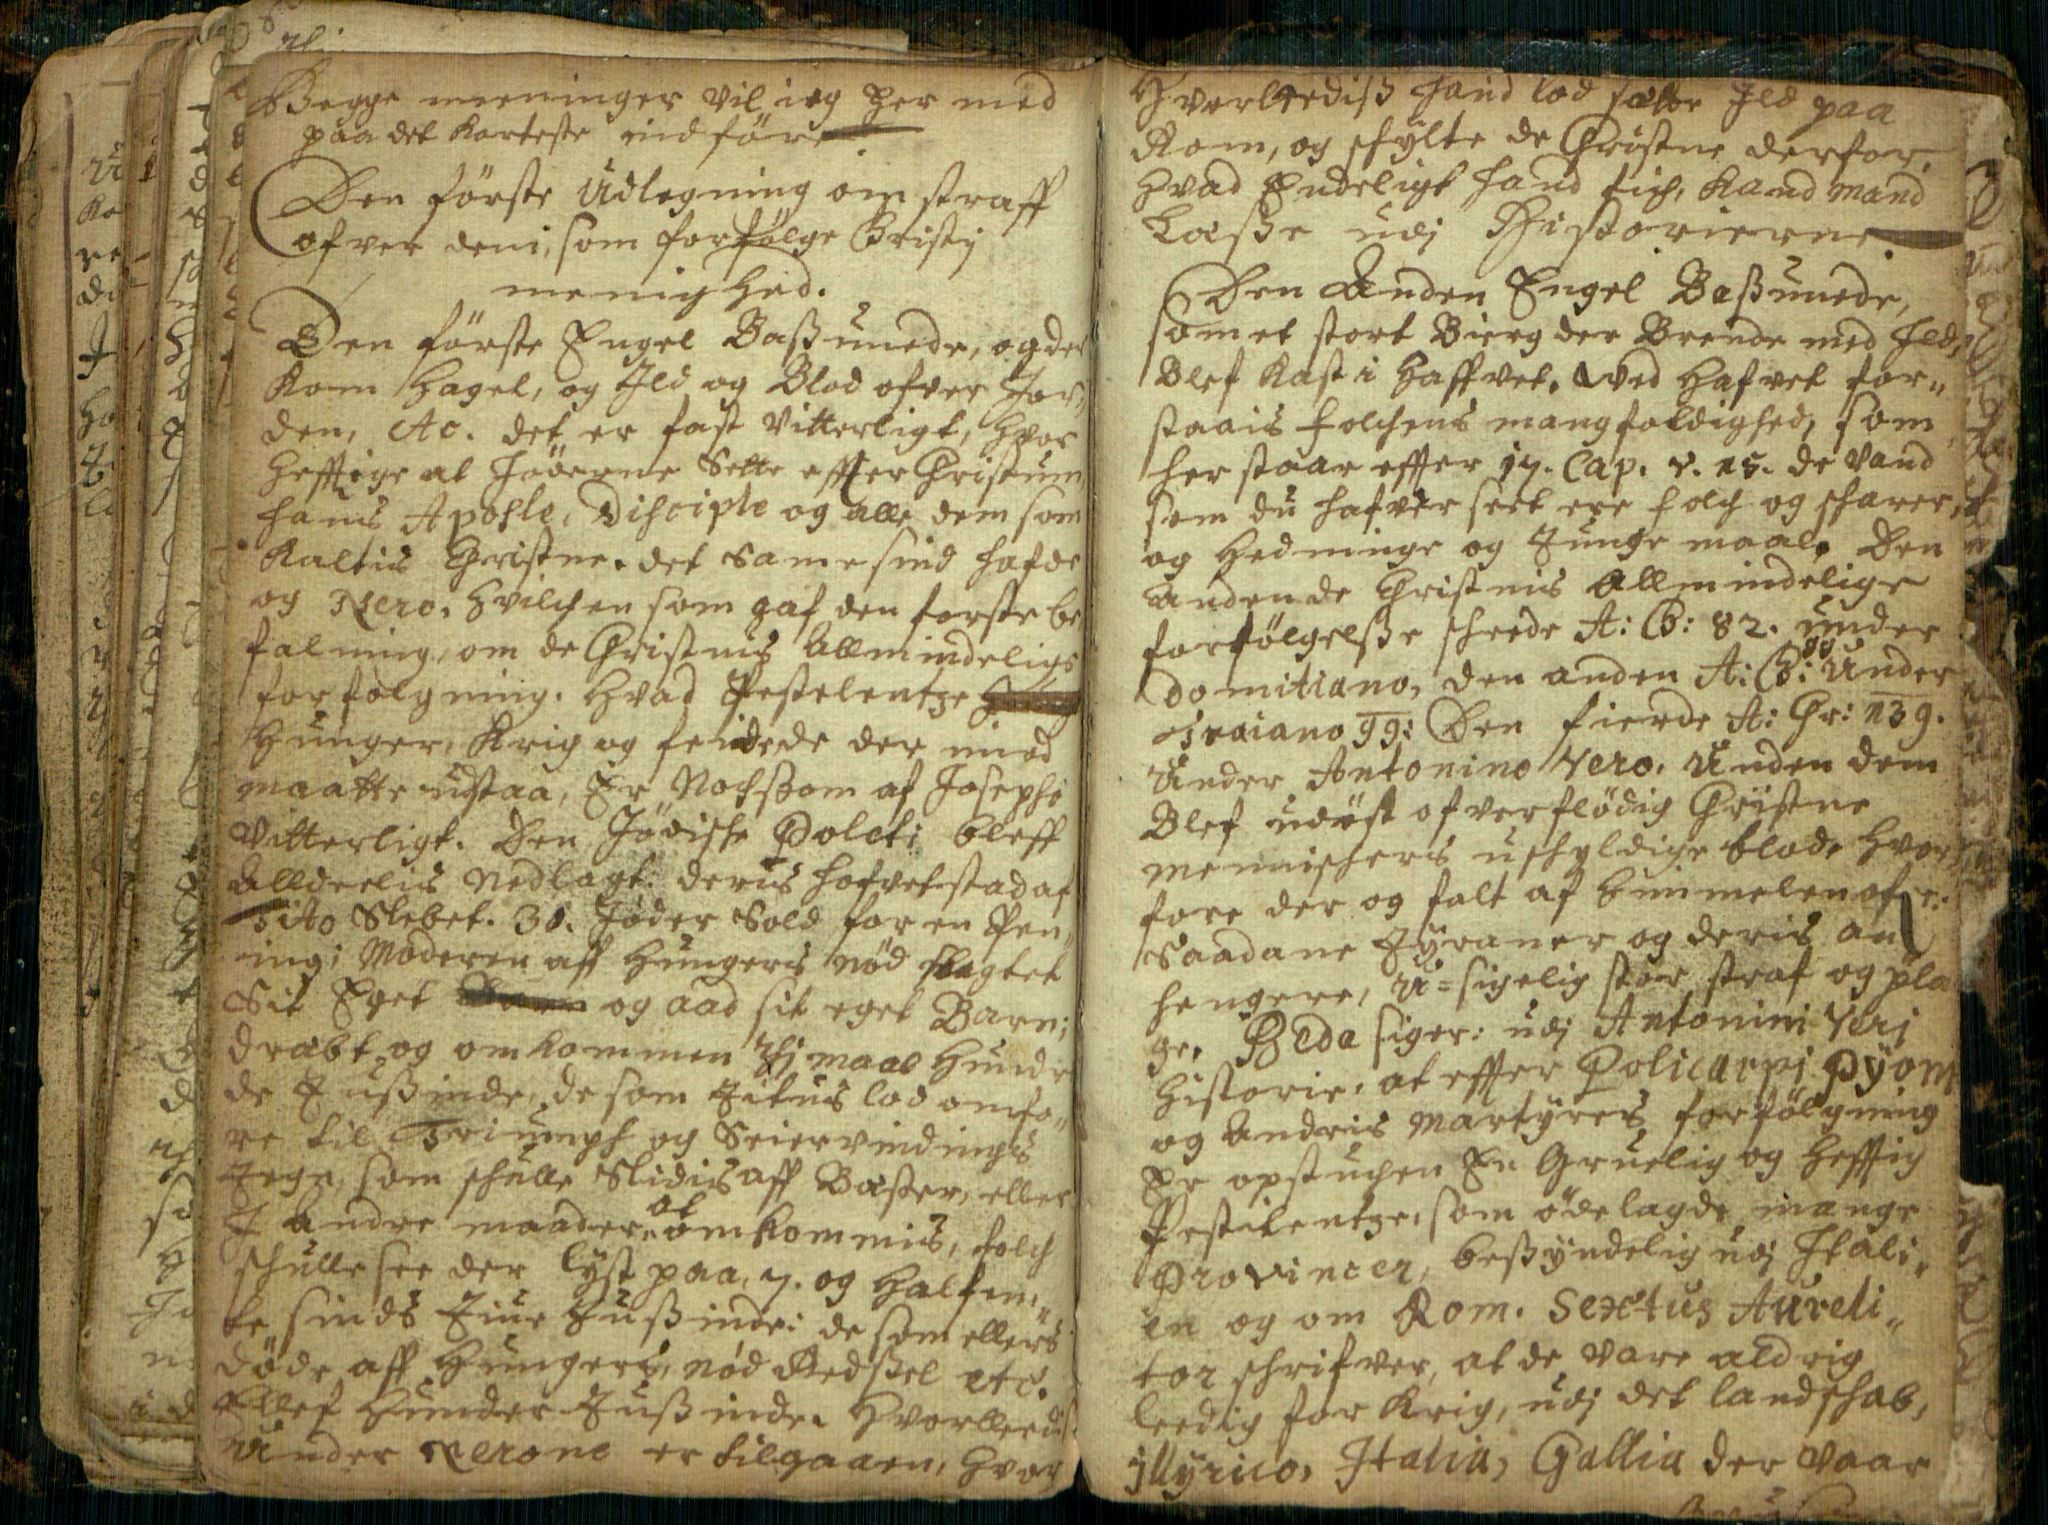 Begge meeninger vil ieg her med
paa det korteste indföre
Den förste Udlegning om straff
ofver dem, som forfölge Christj
menighed.
Den förste Engel Basunede, og der
kom hagel, og Ild og Blod ofver Jor„
den, &c. det er fast vitterligt, hvor
hefftige at Jöderne sette effter Christum
hans Apostle, Disciple og alle dem som
kaltis Christne. det same sind hafde
og Nero, hvilchen som gaf den förste be
falning, om de Christnis Allmindeligs
forfölgning. Hvad Pestelentze
Hunger, Krig og feidede der imod
maatte udstaa, Er Nochsom af Josepho
vitterligt. Den Jödische Poleti bleff
alldeelis Nedlagt. deris hofvetstad af
Tito Slebet. 30. Jöder Sold for en Pen„
ning; Moderen aff Hungers nöd slagtet
Sit Eget og aad sit eget Barn;
dræbt og omkommen maal hundre
de Tusinde, de som Titus lod omfö„
re til Triumph og Seiervindings
Tegn, som schulle Slidis aff Bæster, eller
I andre maader at omkommis, folch
schulle see der lyst paa, 7. og half
te sinds Tiue Tusinde: de som ellers
döde aff Hungers, nöd Redsel etc.
Ellef hunder Tusinde. Hvorleedis
Under Nerone er tilgaaen, hvor
Hvorleedis hand lod sætte Ild paa
Rom, og schylte de Christne derfor,
hvad Endeligt hand fich, kand mand
Læse udj Historierne.
Den Anden Engel Basunede,
som et stort Bierg der Brende med Ild,
Blef kast i Haffvet. Ved Hafvet for„
staais folchens mangfoldighed, som
her staar effter 17. Cap. v. 15. de vand
som du hafver seet ere folch og scharer,
og hedninge og Tungemaal. Den
anden de Christnis Allmindelige
forfölgelse scheede A: C: 82. under
Domitiano, den anden A: C: 99 Under
Traiano 99: Den fierde A: Chr: 139.
Under Antonino Vero. Unden dem
Blef udöst ofverflödig Christne
mennischers uschyldige blod. Hvor
fore der og falt af himmelen ofr:
Saadane Tyraner og deris an
hengere, U=sigelig stor straf og pla
ge. Beda siger: udj Antonini Verj
Historie, at effter Policarpi Pyoni
og Andris Martyrers forfölgning
Er opstuchen En Gruelig og hefftig
Pestilentze, som ödelagde mange
Provincer, besynderlig udj Itali„
en og om Rom. Sextus Aureli„
tor schrifver, at de vare aldrig
leedig for krig, udj det landschab,
jllyrico, Italia, Gallia der vaar